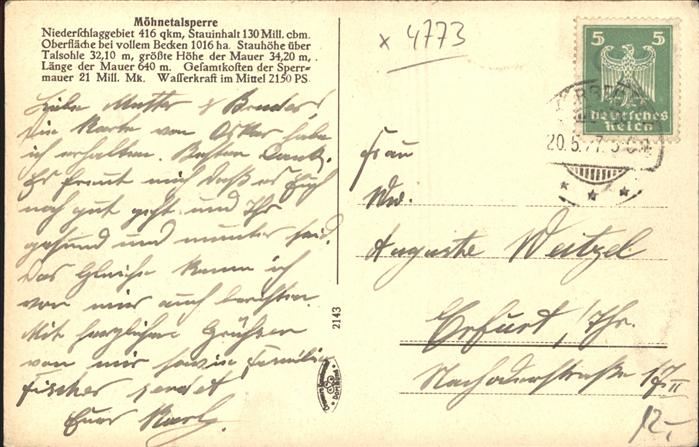 Möhnetalsperre
Niederschlaggebiet 416 qkm, Stauinhalt 130 Mill. cbm.
Oberfläche bei vollem Becken 1016 ha. Stauhöhe über
Talsohle 32,10 m, größte Höhe der Mauer 34,20 m,
Länge der Mauer 640 m. Gesamtkosten der Sperr-
mauer 21 Mill. Mk. Wasserkraft im Mittel 2150 PS.
x 4773
5 5
Deutsches
Reich
20.5.27.
Liebe Mutter & Bruder!
Die Karte von Oskar habe
ich erhalten. Besten Dank.
Es freut mich daß es Euch
noch gut geht und Ihr
gesund und munter seid.
Das Gleiche kann ich
von mir auch berichten.
Mit herzlichen Grüßen
von mir sowie Familie
Fischer sendet
Euer Karl.
2143
Frau
Ww.
Auguste Weitzel
Erfurt /Thr.
12,-